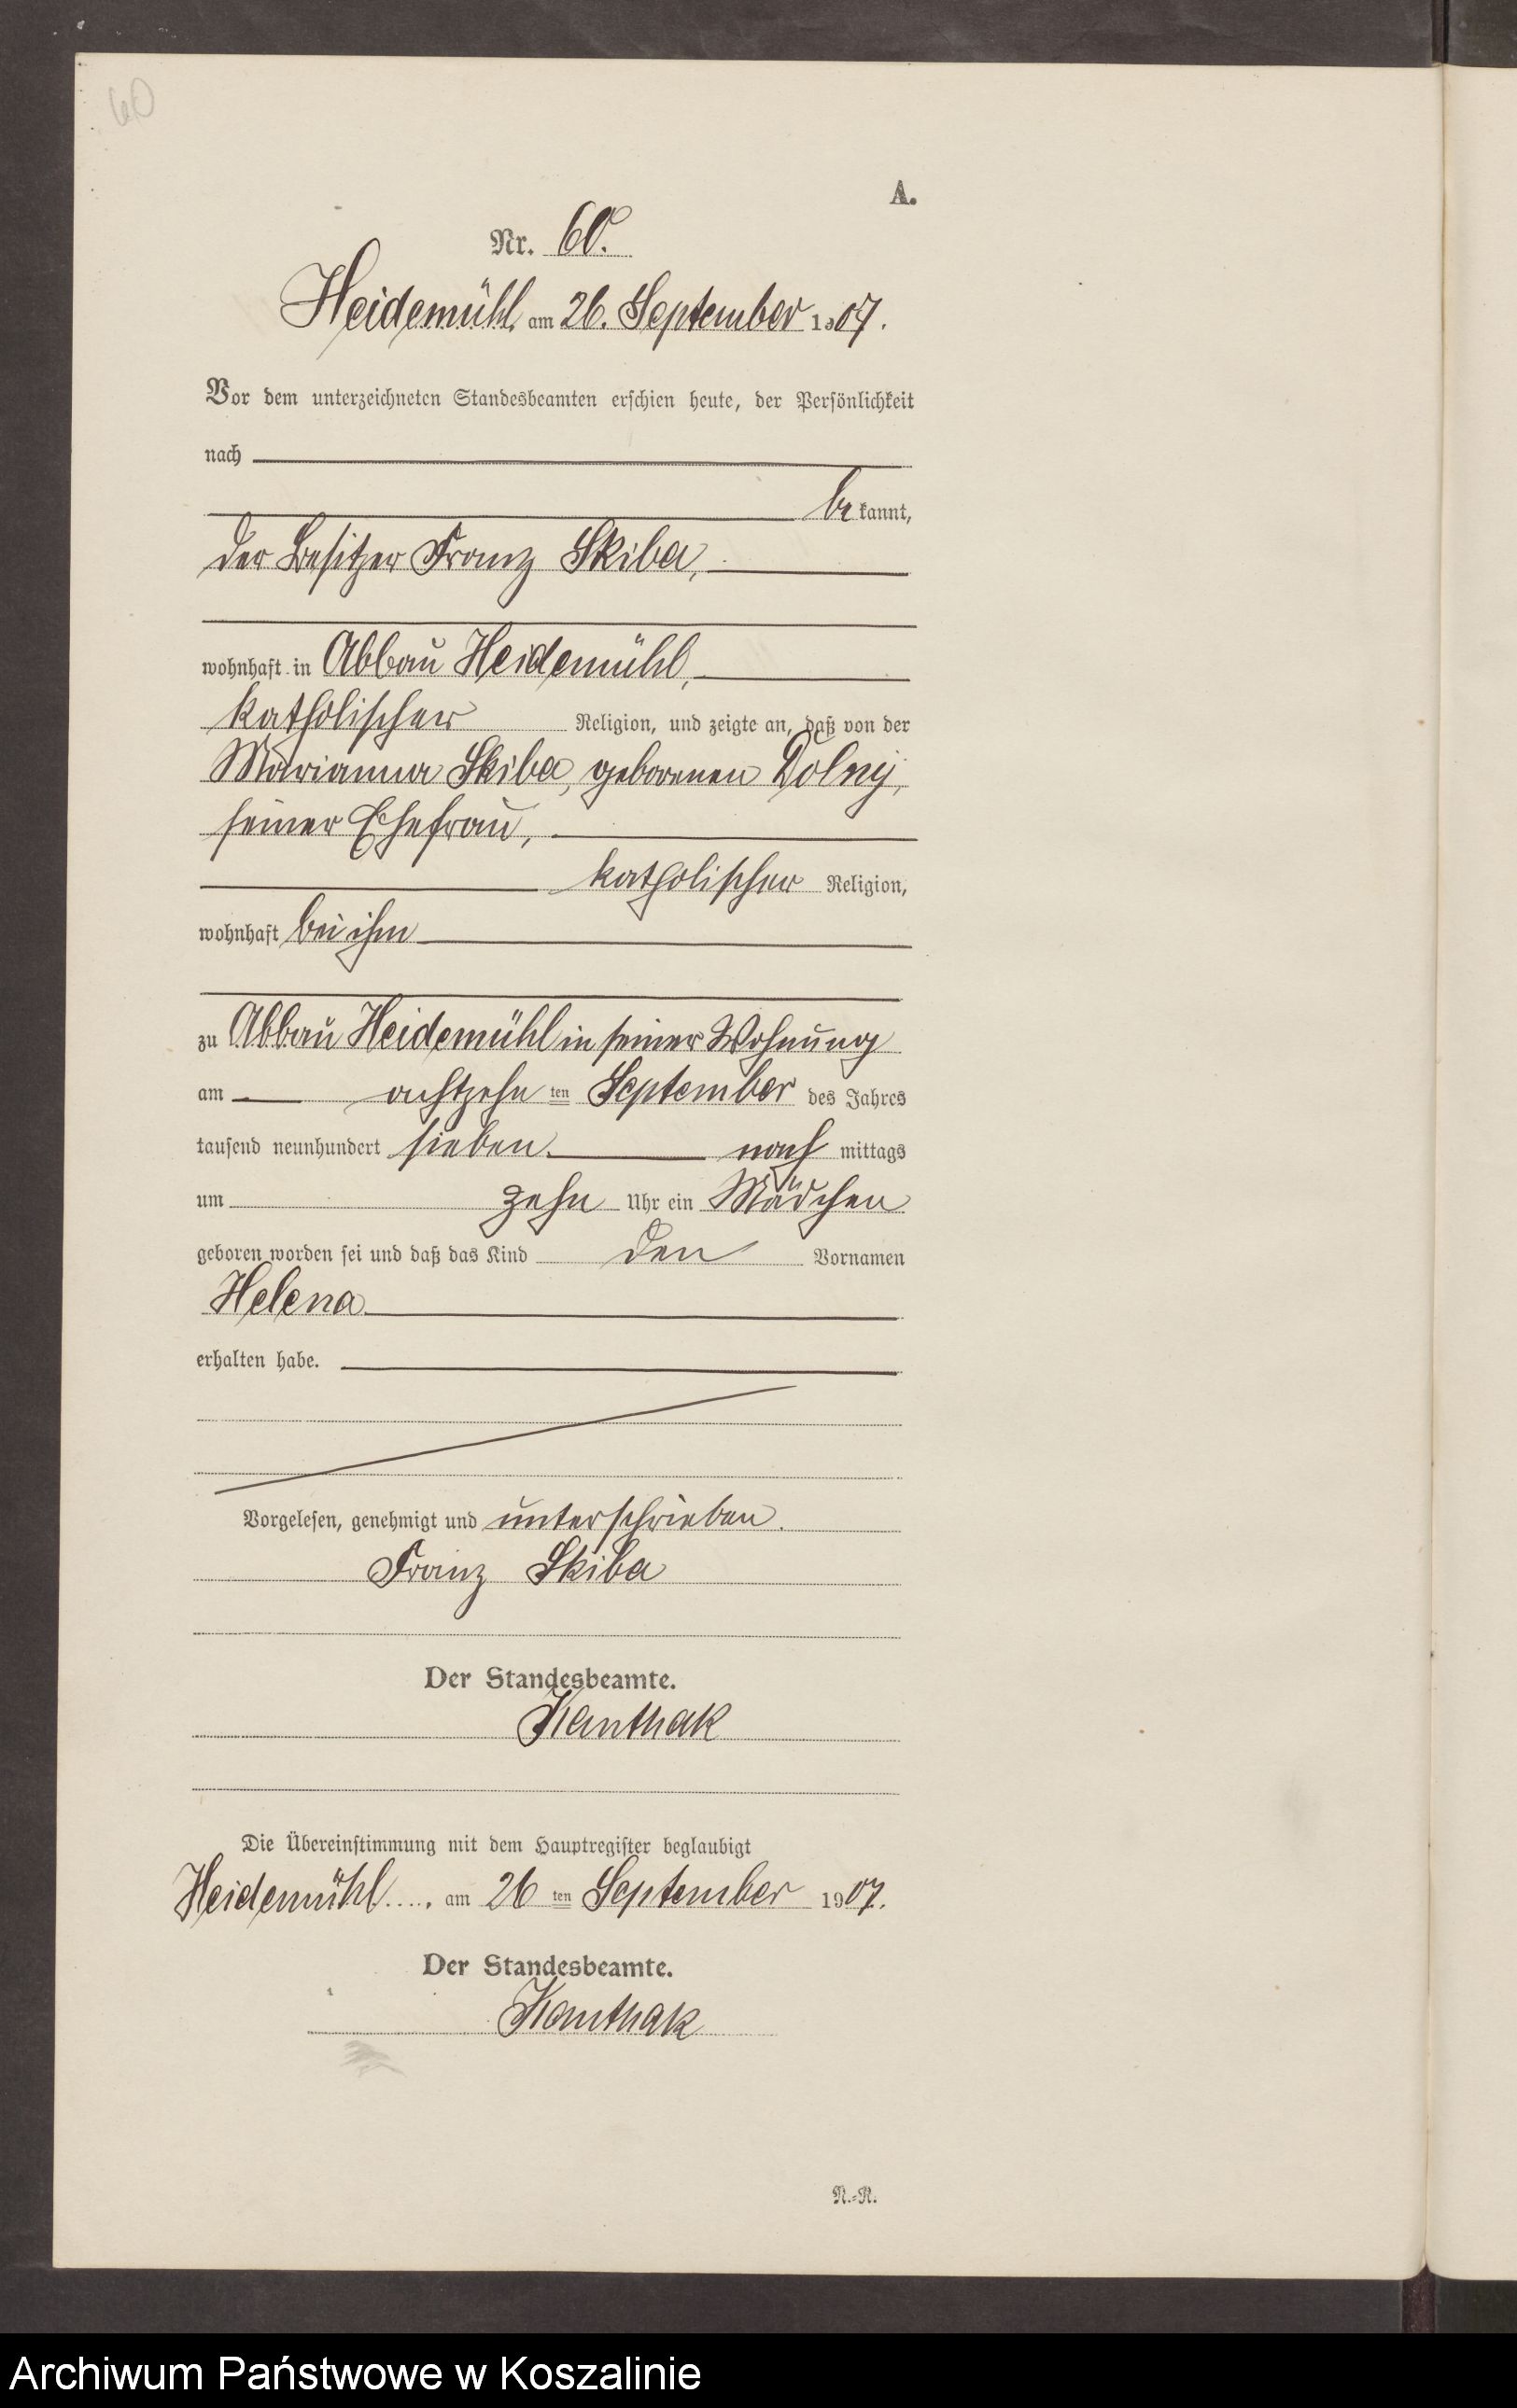 60
A.
Nr. 60.
Heidemühl, am 26. September 1907.
Vor dem unterzeichneten Standesbeamten erschien heute, der Persönlichkeit
nach
be kannt,
der Besitzer Franz Skiba,
wohnhaft in Abbau Heidemühl,
katholischer Religion, und zeigte an, daß von der
Marianna Skiba, geborenen Dolny,
seiner Ehefrau,
katholischer Religion,
wohnhaft bei ihm
zu Abbau Heidemühl in seiner Wohnung
am achtzehn ten September des Jahres
tausend neunhundert sieben nach mittags
um zehn Uhr ein Mädchen
geboren worden sei und daß das Kind den Vornamen
Helena
erhalten habe.
Vorgelesen, genehmigt und unterschrieben.
Franz Skiba
Der Standesbeamte.
Kanthak
Die Übereinstimmung mit dem Hauptregister beglaubigt
Heidemühl, am 26 ten September 1907.
Der Standesbeamte.
Kanthak
N.-R.
Archiwum Państwowe w Koszalinie